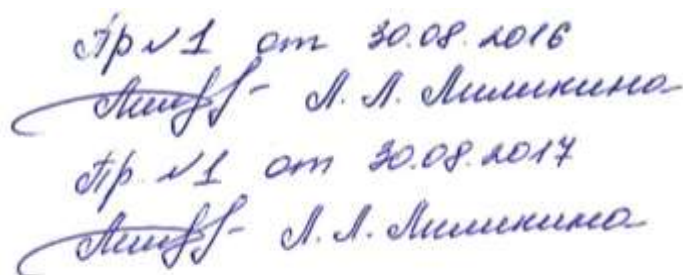 Пр №1 от 30.08.2016
Л. Л. Лиликина
Пр. №1 от 30.08.2017
Л. Л. Лиликина